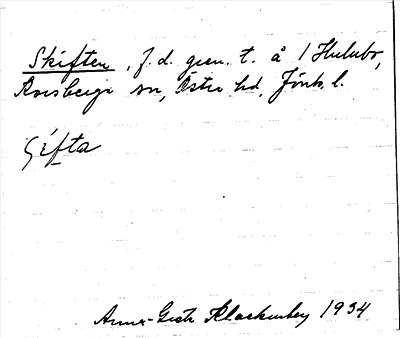 Skiften, f.d. gren. t. å 1 Hulubo,
Korsberga sn, Östra hd, Jönk. l.
Gifta
Anna-Greta Klackenberg 1934